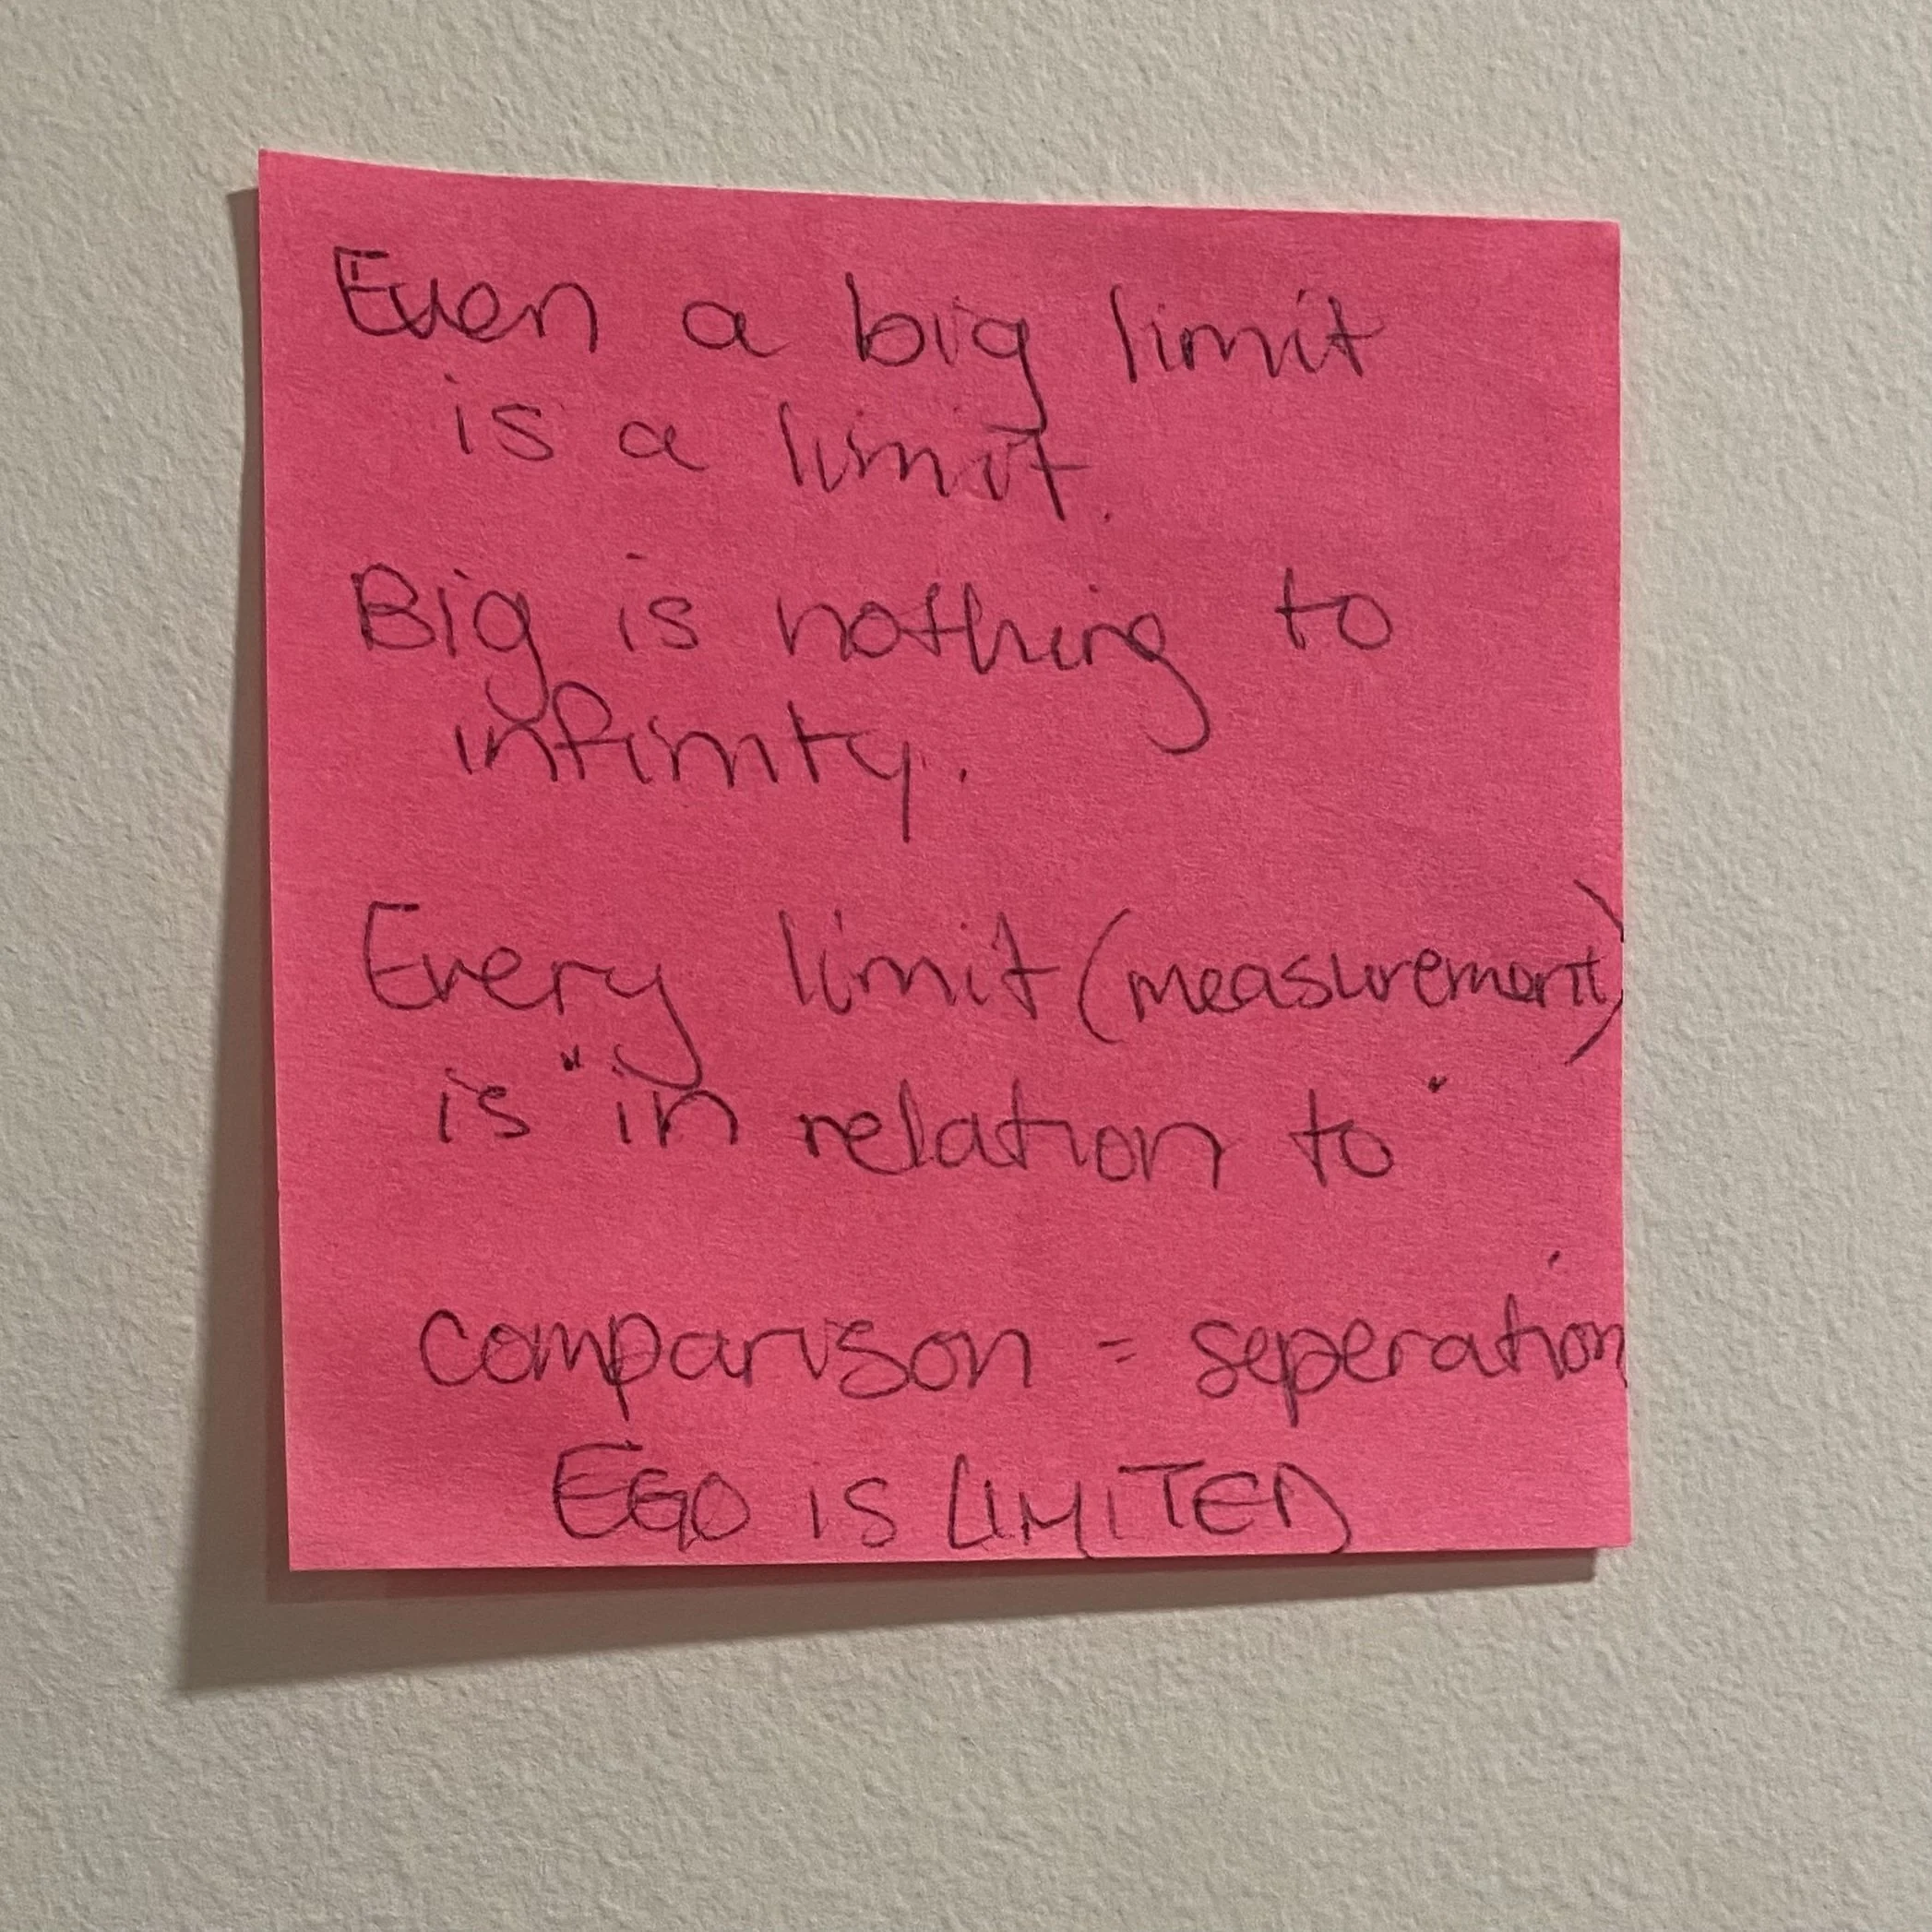 Even a big limit
is a limit.
Big is nothing to
infinity.
Every limit (measurement)
is "in relation to"
comparison = seperation
EGO IS LIMITED